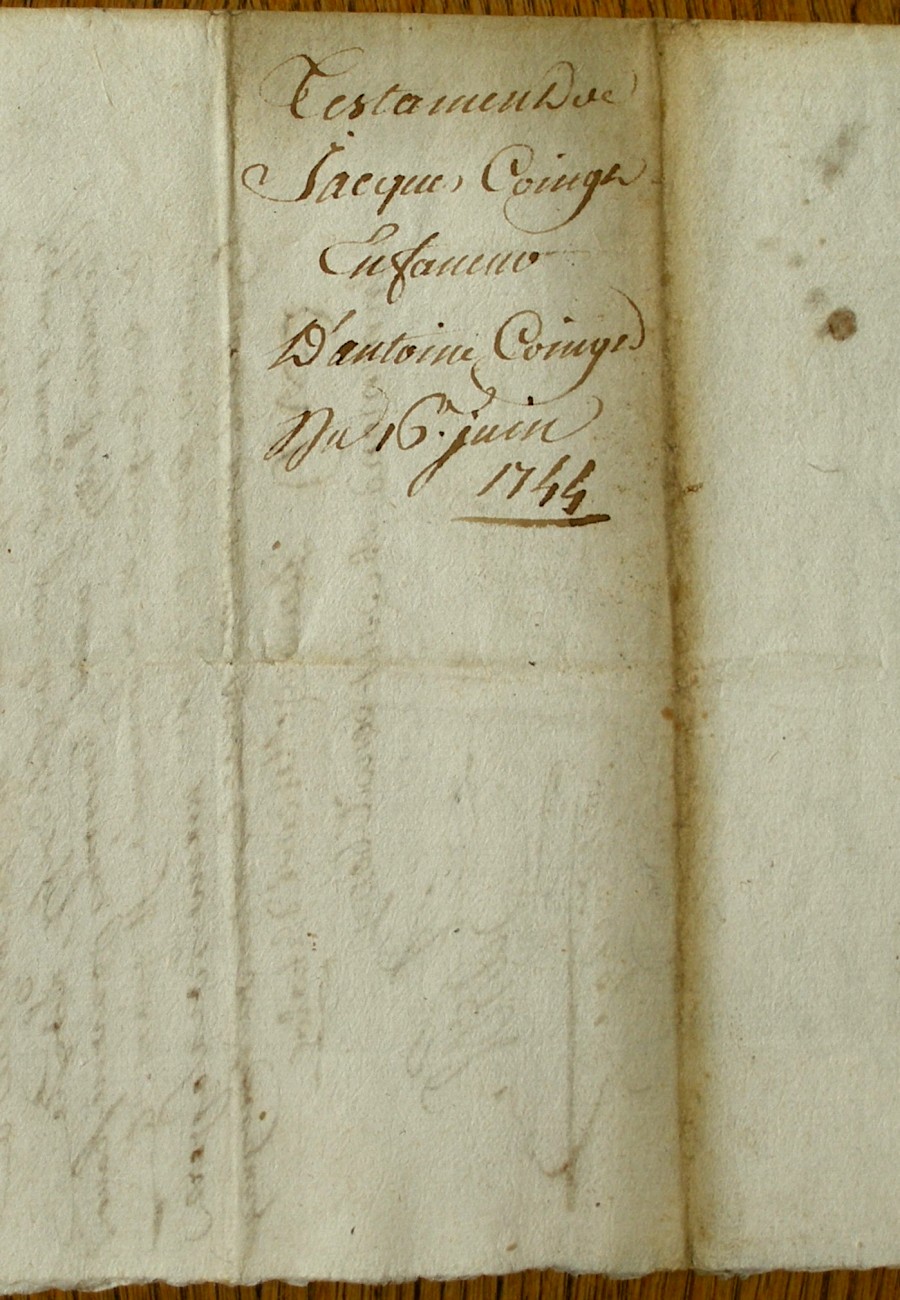 Testament de
Jacques Coinge
En faveur
D'antoine Coinge
Du 16e. juin
1744